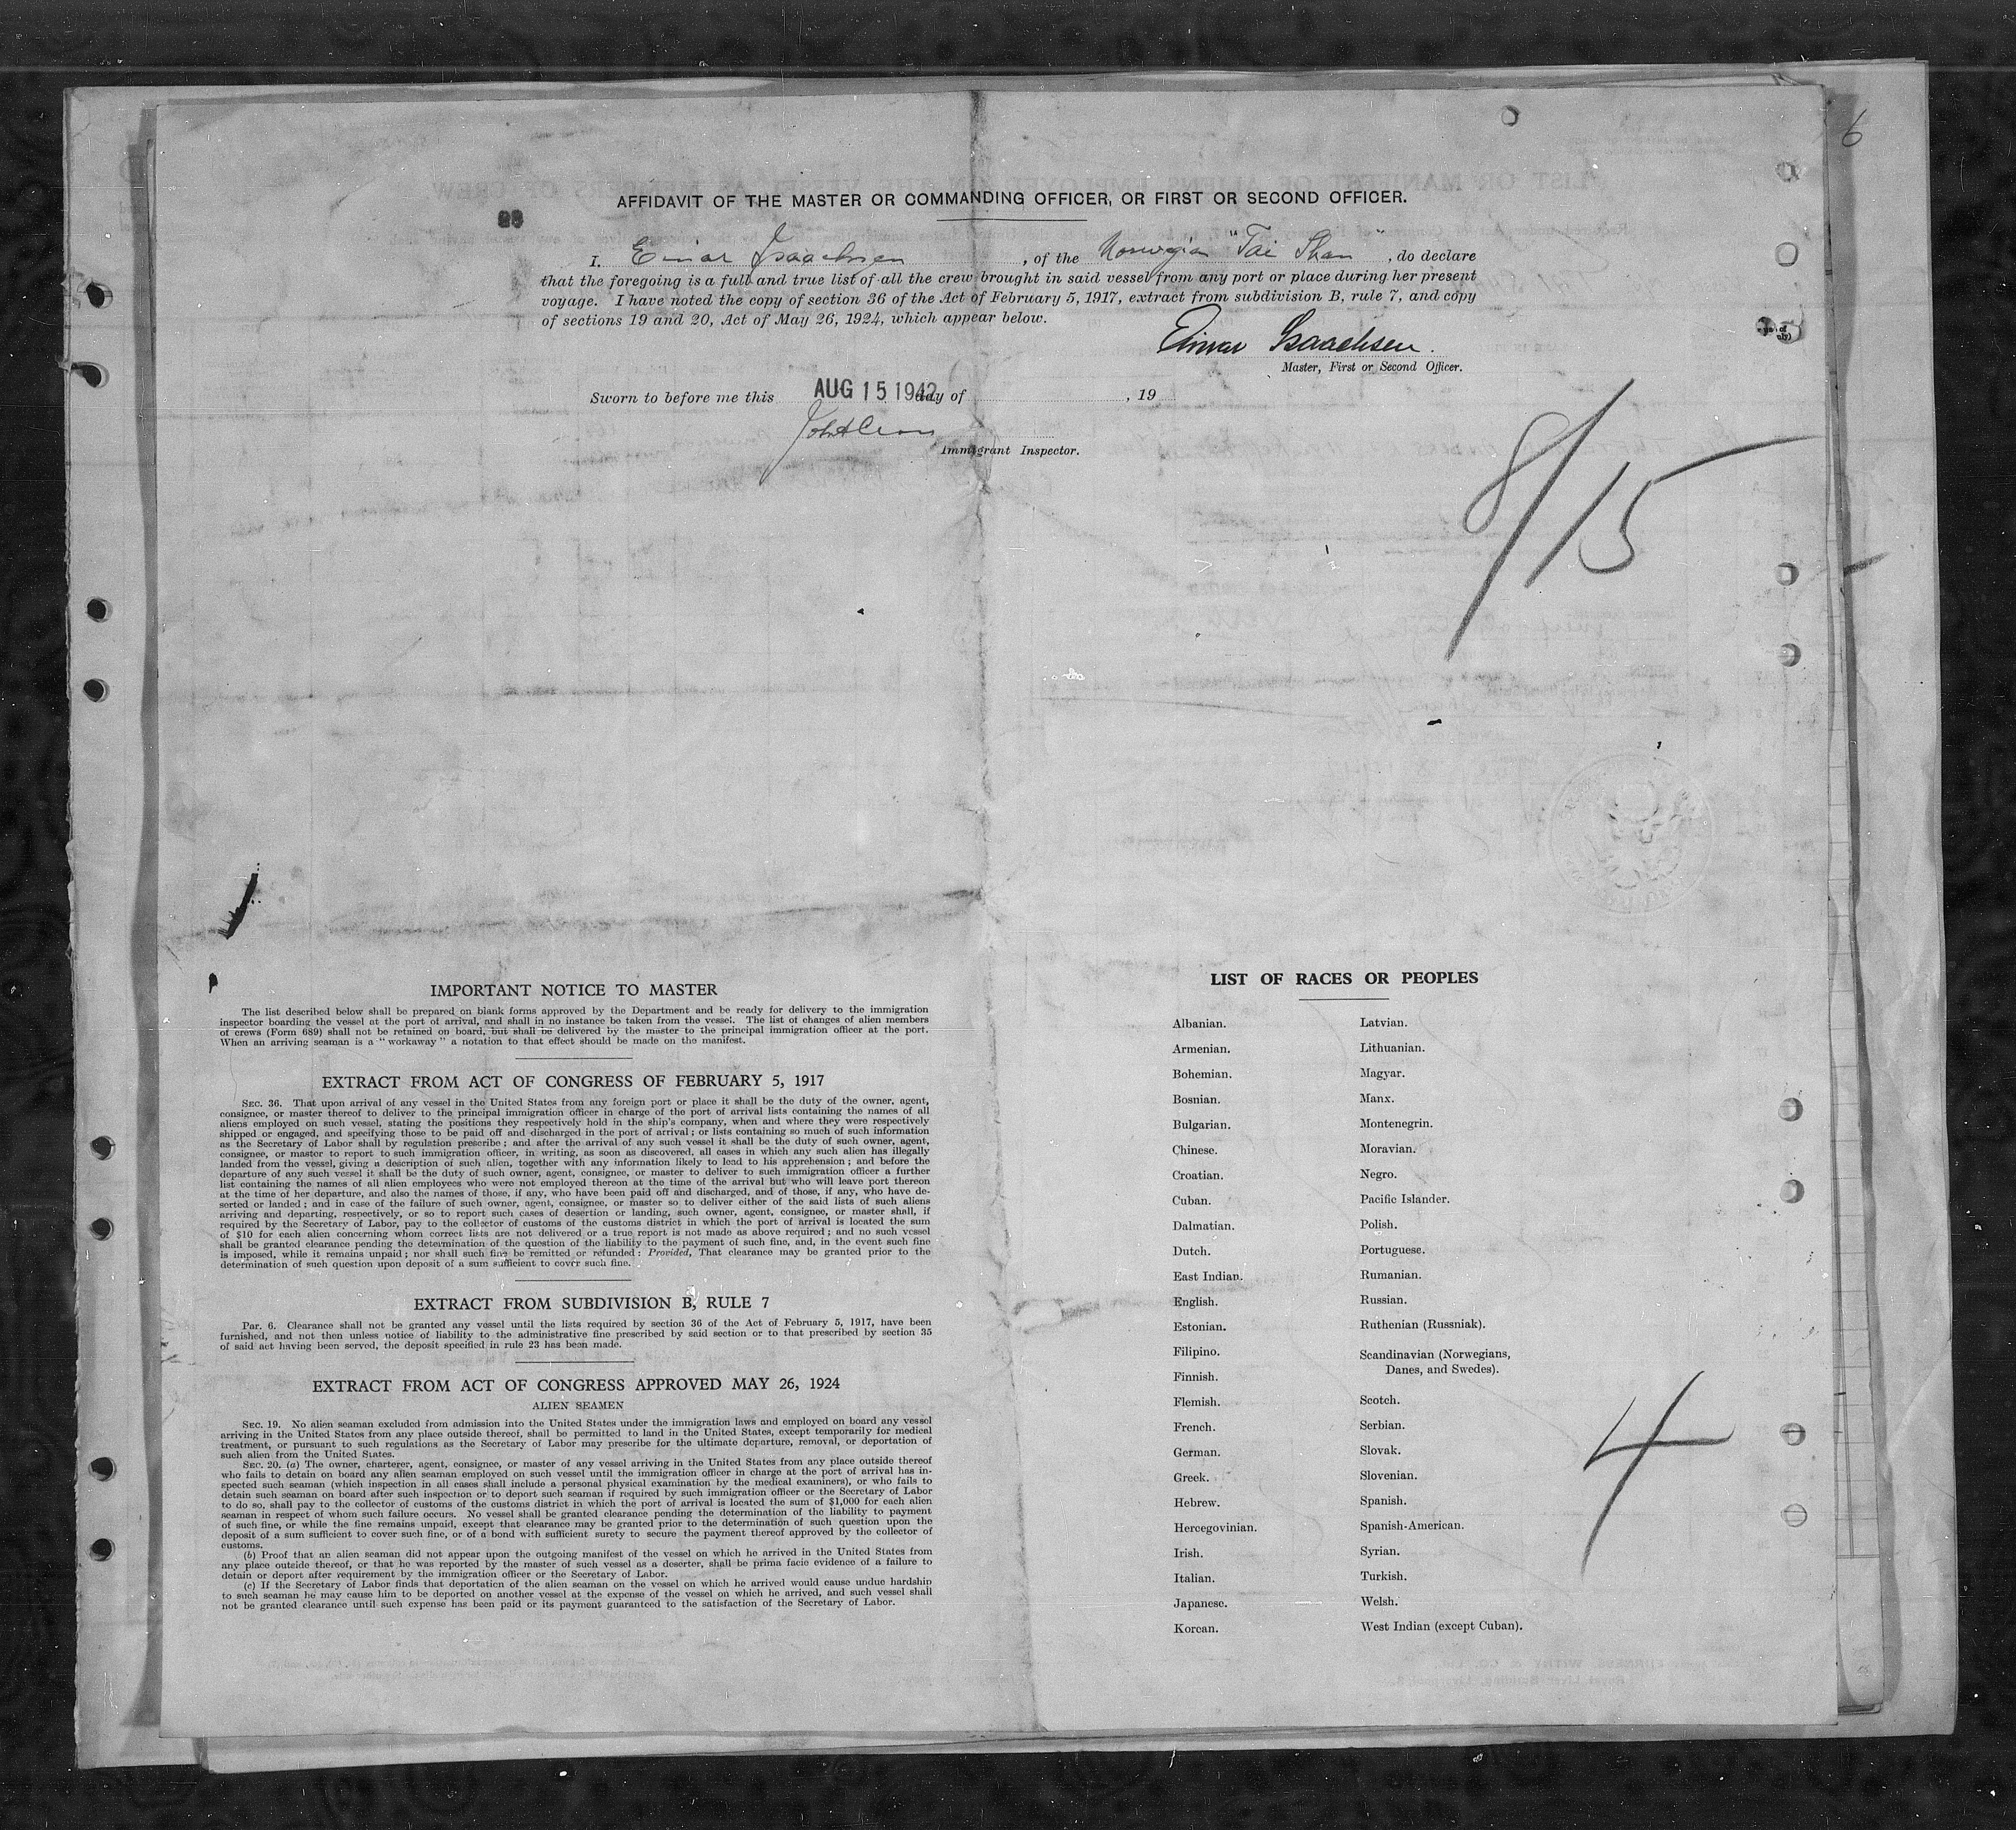 6
AFFIDAVIT OF THE MASTER OR COMMANDING OFFICER, OR FIRST OR SECOND OFFICER.
I, Einar Isaachsen, of the Norwegian "Tai Shan", do declare
that the foregoing is a full and true list of all the crew brought in said vessel from any port or place during her present
voyage. I have noted the copy of section 36 of the Act of February 5, 1917, extract from subdivision B, rule 7, and copy
of sections 19 and 20, Act of May 26, 1924, which appear below.
Einar Isaachsen.
Master, First or Second Officer.
Sworn to before me this AUG 15 1942 day of , 19
Immigrant Inspector.
8/15
IMPORTANT NOTICE TO MASTER
The list described below shall be prepared on blank forms approved by the Department and be ready for delivery to the immigration
inspector boarding the vessel at the port of arrival, and shall in no instance be taken from the vessel. The list of changes of alien members
of crews (Form 689) shall not be retained on board, but shall be delivered by the master to the principal immigration officer at the port.
When an arriving seaman is a "workaway" a notation to that effect should be made on the manifest.
EXTRACT FROM ACT OF CONGRESS OF FEBRUARY 5, 1917
SEC. 36. That upon arrival of any vessel in the United States from any foreign port or place it shall be the duty of the owner, agent,
consignee, or master thereof to deliver to the principal immigration officer in charge of the port of arrival lists containing the names of all
aliens employed on such vessel, stating the positions they respectively hold in the ship's company, when and where they were respectively
shipped or engaged, and specifying those to be paid off and discharged in the port of arrival; or lists containing so much of such information
as the Secretary of Labor shall by regulation prescribe; and after the arrival of any such vessel it shall be the duty of such owner, agent,
consignee, or master to report to such immigration officer, in writing, as soon as discovered, all cases in which any such alien has illegally
landed from the vessel, giving a description of such alien, together with any information likely to lead to his apprehension; and before the
departure of any such vessel it shall be the duty of such owner, agent, consignee, or master to deliver to such immigration officer a further
list containing the names of all alien employees who were not employed thereon at the time of the arrival but who will leave port thereon
at the time of her departure, and also the names of those, if any, who have been paid off and discharged, and of those, if any, who have de-
serted or landed; and in case of the failure of such owner, agent, consignee, or master so to deliver either of the said lists of such aliens
arriving and departing, respectively, or so to report such cases of desertion or landing, such owner, agent, consignee, or master shall, if
required by the Secretary of Labor, pay to the collector of customs of the customs district in which the port of arrival is located the sum
of $10 for each alien concerning whom correct lists are not delivered or a true report is not made as above required; and no such vessel
shall be granted clearance pending the determination of the question of the liability to the payment of such fine, and, in the event such fine
is imposed, while it remains unpaid; nor shall such fine be remitted or refunded: Provided, That clearance may be granted prior to the
determination of such question upon deposit of a sum sufficient to cover such fine.
EXTRACT FROM SUBDIVISION B, RULE 7
Par. 6. Clearance shall not be granted any vessel until the lists required by section 36 of the Act of February 5, 1917, have been
furnished, and not then unless notice of liability to the administrative fine prescribed by said section or to that prescribed by section 35
of said act having been served, the deposit specified in rule 23 has been made.
EXTRACT FROM ACT OF CONGRESS APPROVED MAY 26, 1924
ALIEN SEAMEN
SEC. 19. No alien seaman excluded from admission into the United States under the immigration laws and employed on board any vessel
arriving in the United States from any place outside thereof, shall be permitted to land in the United States, except temporarily for medical
treatment, or pursuant to such regulations as the Secretary of Labor may prescribe for the ultimate departure, removal, or deportation of
such alien from the United States.
SEC. 20. (a) The owner, charterer, agent, consignee, or master of any vessel arriving in the United States from any place outside thereof
who fails to detain on board any alien seaman employed on such vessel until the immigration officer in charge at the port of arrival has in-
spected such seaman (which inspection in all cases shall include a personal physical examination by the medical examiners), or who fails to
detain such seaman on board after such inspection or to deport such seaman if required by such immigration officer or the Secretary of Labor
to do so, shall pay to the collector of customs of the customs district in which the port of arrival is located the sum of $1,000 for each alien
seaman in respect of whom such failure occurs. No vessel shall be granted clearance pending the determination of the liability to payment
of such fine, or while the fine remains unpaid, except that clearance may be granted prior to the determination of such question upon the
deposit of a sum sufficient to cover such fine, or of a bond with sufficient surety to secure the payment thereof approved by the collector of
customs.
(b) Proof that an alien seaman did not appear upon the outgoing manifest of the vessel on which he arrived in the United States from
any place outside thereof, or that he was reported by the master of such vessel as a deserter, shall be prima facie evidence of a failure to
detain or deport after requirement by the immigration officer or the Secretary of Labor.
(c) If the Secretary of Labor finds that deportation of the alien seaman on the vessel on which he arrived would cause undue hardship
to such seaman he may cause him to be deported on another vessel at the expense of the vessel on which he arrived, and such vessel shall
not be granted clearance until such expense has been paid or its payment guaranteed to the satisfaction of the Secretary of Labor.
LIST OF RACES OR PEOPLES
Albanian.
Armenian.
Bohemian.
Bosnian.
Bulgarian.
Chinese.
Croatian.
Cuban.
Dalmatian.
Dutch.
East Indian.
English.
Estonian.
Filipino.
Finnish.
Flemish.
French.
German.
Greek.
Hebrew.
Hercegovinian.
Irish.
Italian.
Japanese.
Korean.
Latvian.
Lithuanian.
Magyar.
Manx.
Montenegrin.
Moravian.
Negro.
Pacific Islander.
Polish.
Portuguese.
Rumanian.
Russian.
Ruthenian (Russniak).
Scandinavian (Norwegians,
Danes, and Swedes).
Scotch.
Serbian.
Slovak.
Slovenian.
Spanish.
Spanish-American.
Syrian.
Turkish.
Welsh.
West Indian (except Cuban).
4